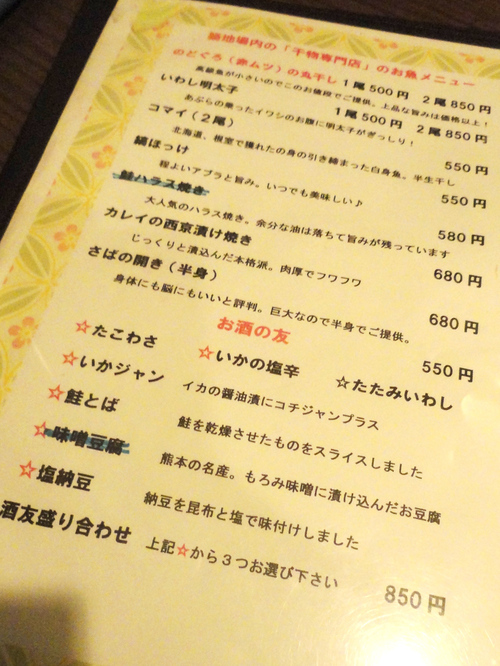 築地場内の「干物専門店」のお魚メニュー
のどぐろ（赤ムツ）の丸干し 1尾500円 2尾850円
高級魚が小さいのでこのお値段でご提供。上品な旨味は価格以上！
いわし明太子 1尾500円 2尾850円
あぶらの乗ったイワシのお腹に明太子がぎっしり！
コマイ（2尾） 550円
北海道、根室で獲れたの身の引き締まった白身魚。半生干し
縞ほっけ 550円
程よいアブラと旨味。いつでも美味しい♪
鮭ハラス焼き 580円
大人気のハラス焼き。余分な油は落ちて旨みが残っています
カレイの西京漬け焼き 680円
じっくりと漬込んだ本格派。肉厚でフワフワ
さばの開き（半身） 680円
身体にも脳にもいいと評判。巨大なので半身でご提供。
お酒の友 550円
☆たこわさ ☆いかの塩辛 ☆たたみいわし
☆いかジャン イカの醤油漬にコチジャンプラス
☆鮭とば 鮭を乾燥させたものをスライスしました
☆味噌豆腐 熊本の名産。もろみ味噌に漬け込んだお豆腐
☆塩納豆 納豆を昆布と塩で味付けしました
酒友盛り合わせ 上記☆から3つお選び下さい 850円